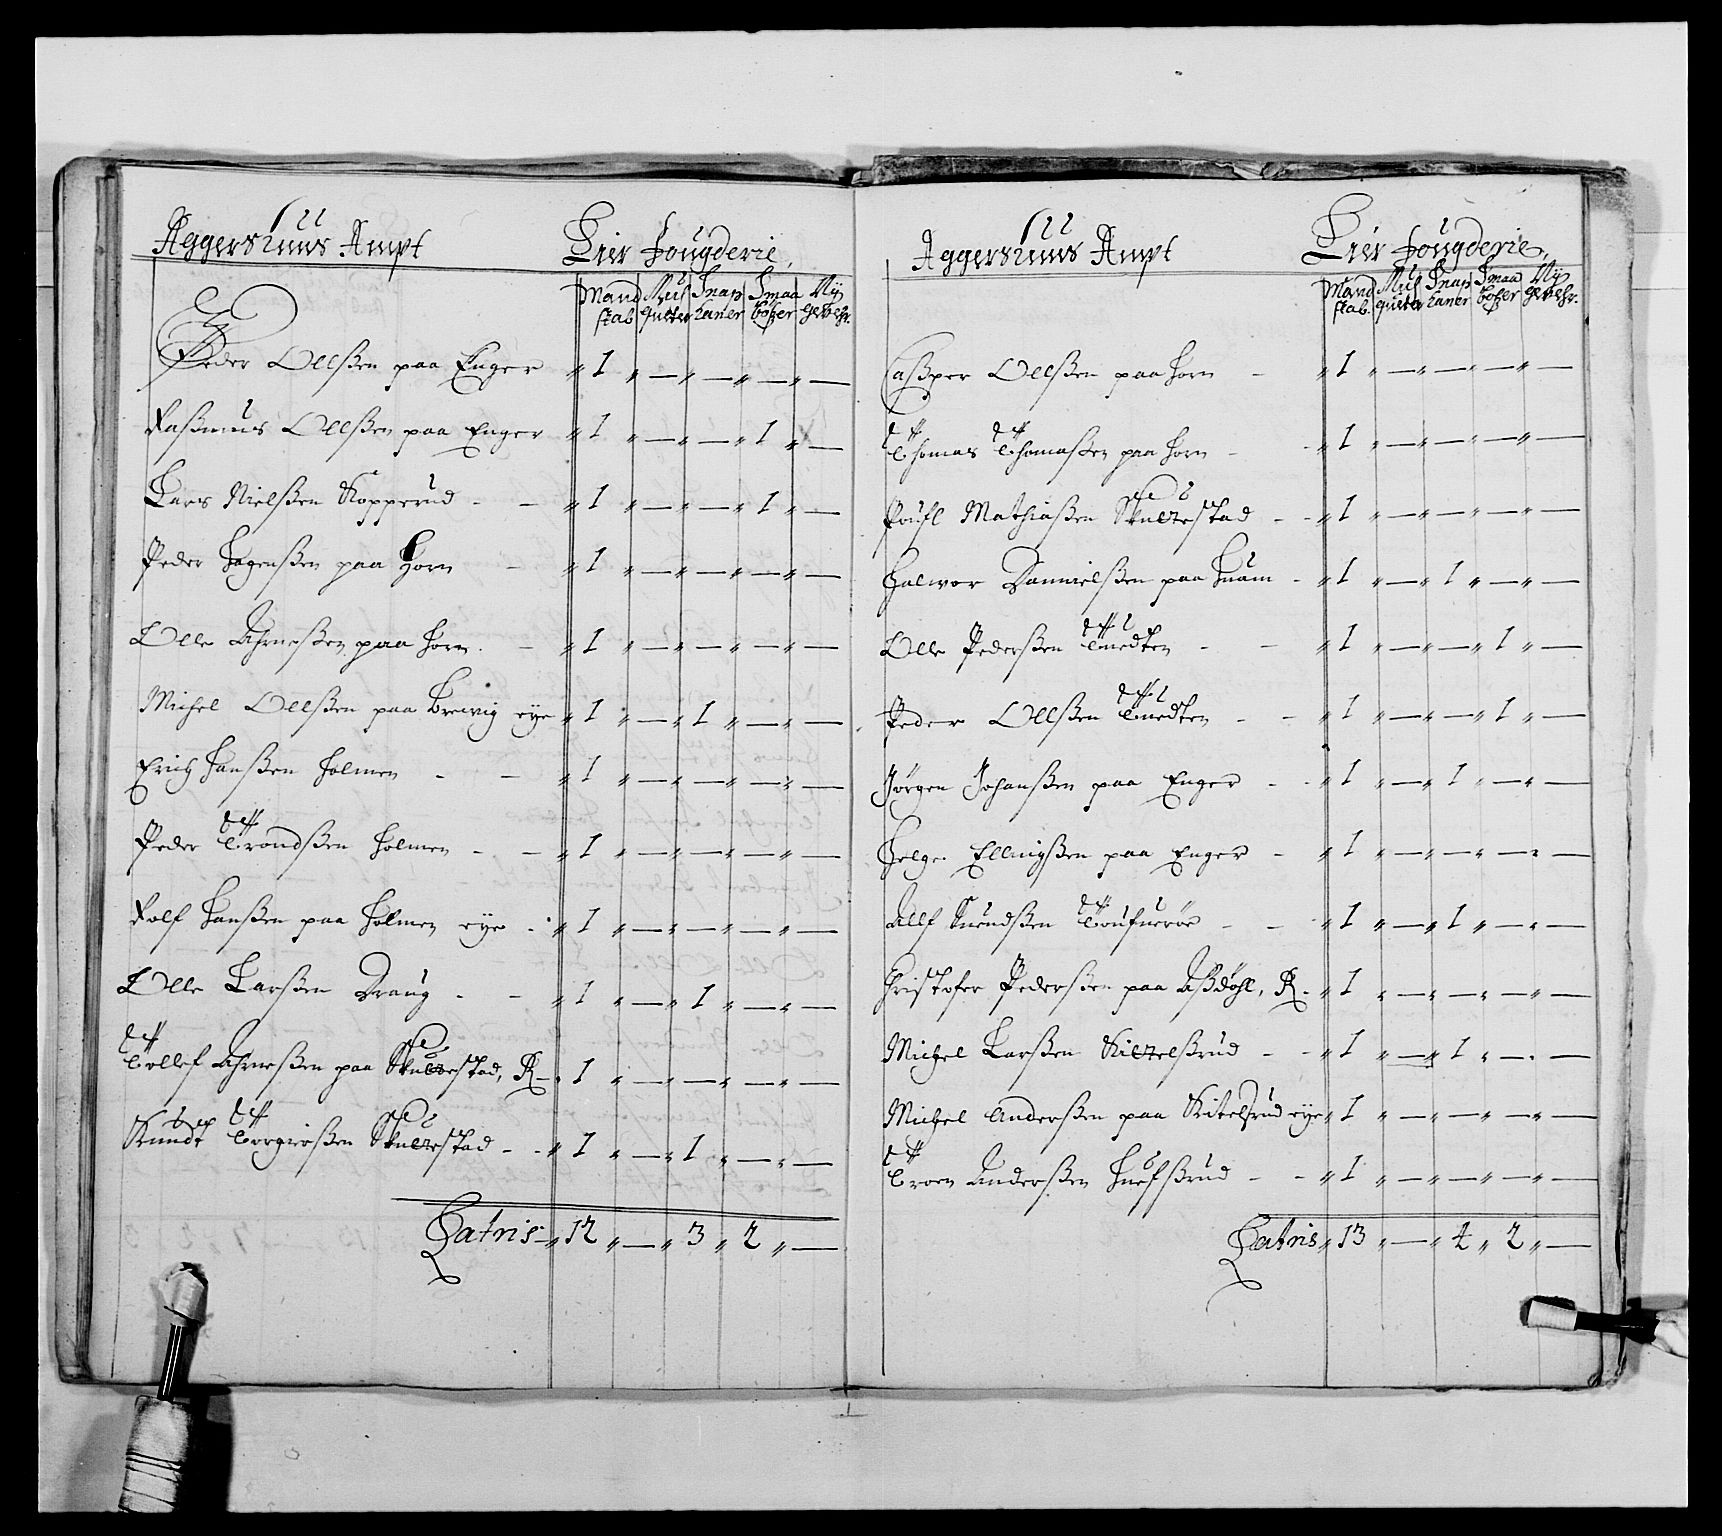 Aggershuus Ampt Lier Fougderie,
Mandskab Musquetter Snaphaner Smaa Bøßer Nÿ Gewehr.
Peder Ollßen paa Enger „ 1 „ — „ — „ — „ —
Raßmus Ollßen paa Enger „ 1 „ — „ — „ 1 „ —
Lars Nielßen Kopperud - - „ 1 „ — „ — „ 1 „ —
Peder Hagenßen paa Horn - „ 1 „ — „ — „ — „ —
Olle Ahrneßen paa Horn. - „ 1 „ — „ — „ — „ —
Michel Ollßen paa Brewig eye „ 1 „ — „ 1 „ — „ —
Erich Hanßen Holmen - - „ 1 „ — „ — „ — „ —
Peder Trondßen Holmen - - „ 1 „ — „ — „ — „ —
Rolf Hanßen paa Holmen eye - „ 1 „ — „ — „ — „ —
Olle Larßen Draug - - „ 1 „ — „ 1 „ — „ —
Tollef Ahrneßen paa Skulrestad, R - „ 1 „ — „ — „ — „ —
Knudt Torgierßen Skulrestad - - „ 1 „ — „ 1 „ — „ —
Latris - „ 12 „ — „ 3 „ 2 „ —
Aggershuus Ampt Lier Fougderie,
Mandskab. Musquetter Snaphaner Smaa Bøßer Nÿ Gewehr.
Caßper Ollßen paa Horn - „ 1 „ — „ — „ — „ —
Thomas Thomaßen paa Horn - - „ 1 „ — „ — „ — „ —
Poufl Mathiaßen Skulrestad - - „ 1 „ — „ — „ — „ —
Halwor Dannielßen paa Huam - „ 1 „ — „ 1 „ — „ —
Olle Pederßen Tuedten - - „ 1 „ — „ — „ 1 „ —
Peder Ollßen Tuedten - - „ 1 „ — „ — „ 1 „ —
Jørgen Johanßen paa Enger - - „ 1 „ — „ 1 „ — „ —
Helge Ellingßen paa Enger - „ 1 „ — „ — „ — „ —
Allf Suendßen - - „ 1 „ — „ 1 „ — „ —
Christofer Pederßen paa Aßdøhl, R. „ 1 „ — „ — „ — „ —
Michel Larßen Kitelßrud - - „ 1 „ — „ 1 „ — „ —
Michel Anderßen paa Kitelsrud eye „ 1 „ — „ — „ — „ —
Troen Anderßen Huefßrud - - „ 1 „ — „ — „ — „ —
Latris „ 13 „ — „ 4 „ 2 „ —